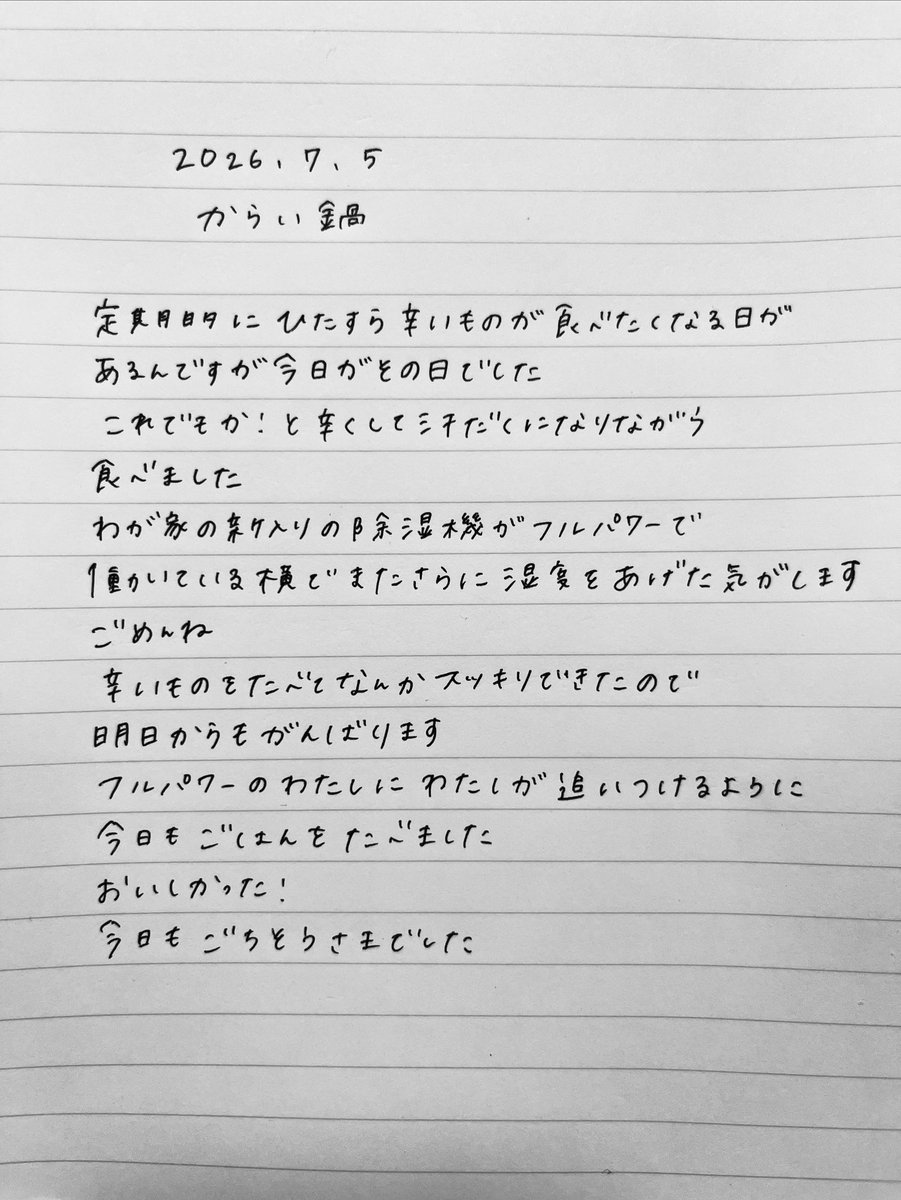 2026、7、5
からい鍋
定期的にひたすら辛いものが食べたくなる日が
あるんですが今日がその日でした
これでもか！と辛くして汗だくになりながら
食べました
わが家の新入りの除湿機がフルパワーで
働いている横でまたさらに湿度をあげた気がします
ごめんね
辛いものをたべてなんかスッキリできたので
明日からもがんばります
フルパワーのわたしにわたしが追いつけるように
今日もごはんをたべました
おいしかった！
今日もごちそうさまでした